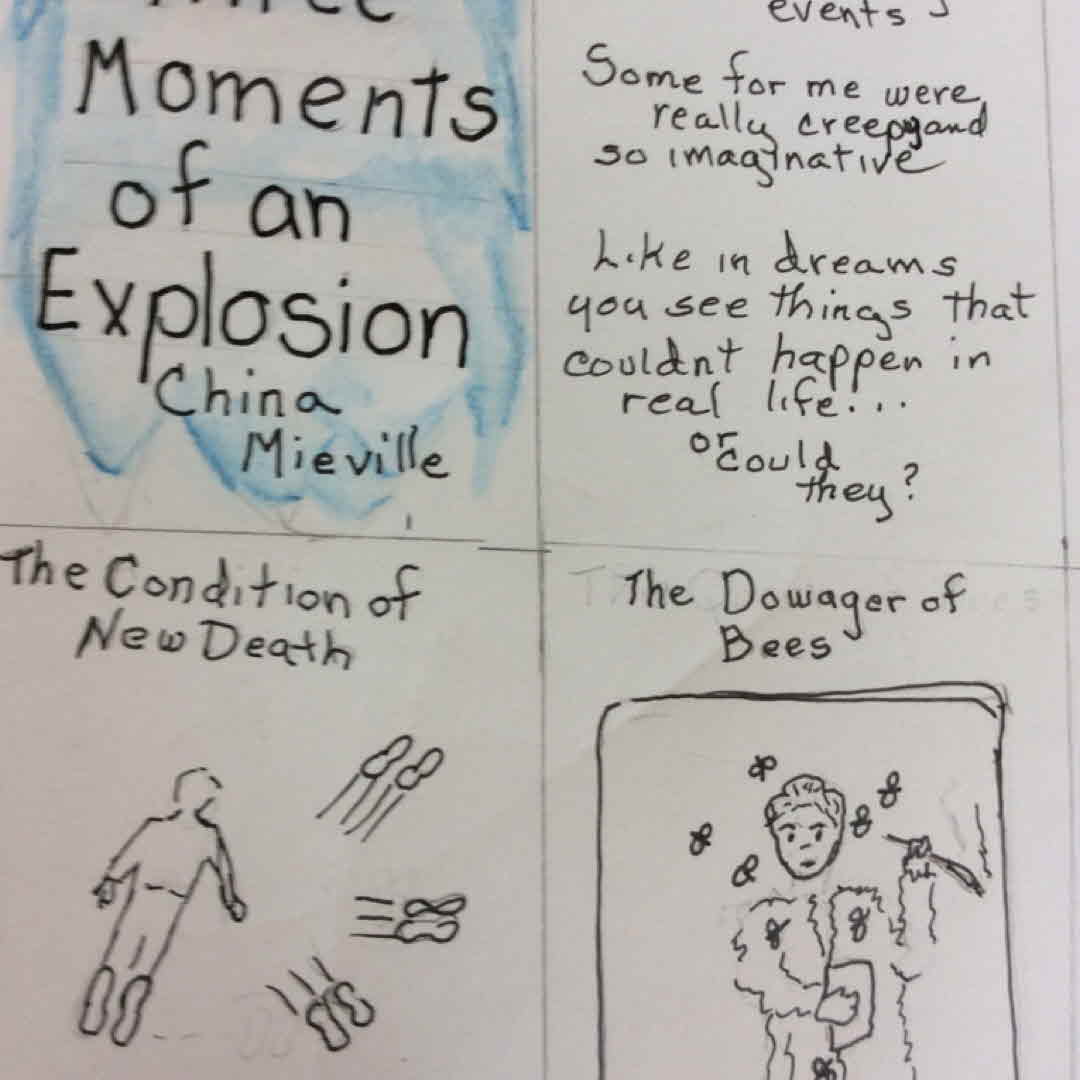 Moments
of an
Explosion
China
Mieville
events
Some for me were
really creepy and
so imaginative
Like in dreams
you see things that
couldnt happen in
real life...
or could
they?
The Condition of
New Death
The Dowager of
Bees